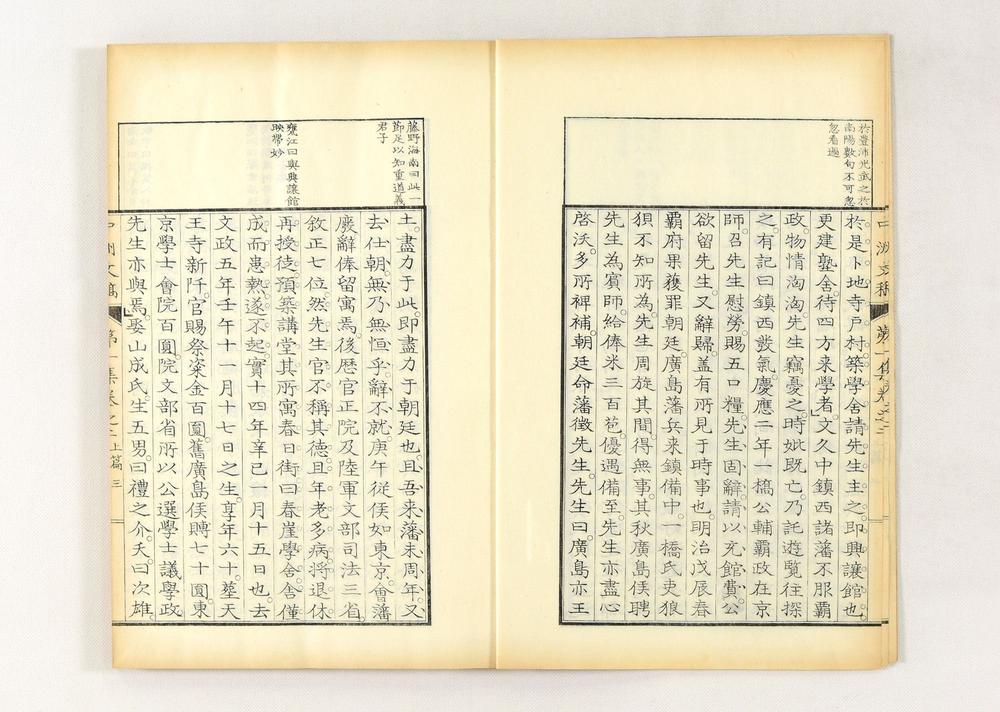 於豊沛光武之於
南陽數句不可忽
忽看過
於是卜地寺戸村築學舍請先生主之即興讓館也。
更建塾舍待四方來學者。文久中鎮西諸藩不服霸
政。物情洶洶。先生竊憂之。時妣既亡。乃託遊覽往探
之。有記曰鎮西發氣。慶應二年一橋公輔霸政在京
師。召先生慰勞。賜五口糧。先生固辭。請以充館費。公
欲留先生。又辭歸。蓋有所見于時事也。明治戊辰春
霸府果獲罪朝廷。廣島藩兵來鎮備中。一橋氏吏狼
狽不知所為。先生周旋其間。得無事。其秋廣島侯聘
先生為賓師。給俸米三百苞。優遇備至。先生亦盡心
啓沃。多所裨補。朝廷命藩徵先生。先生曰。廣島亦王
藤野海南曰此一
節足以知重道義
君子
甕江曰與興讓館
映帶妙
土。盡力于此。即盡力于朝廷也。且吾來藩未周年。又
去仕朝。無乃無恒乎。辭不就。庚午從侯如東京。會藩
廢辭俸留寓焉。後歷官正院及陸軍文部司法三省。
敘正七位。然先生官不稱其德。且年老多病。將退休
再授徒。預築講堂其所寓春日街。曰春崖學舍。舍僅
成而患熱。遂不起。實十四年辛巳一月十五日也。去
文政五年壬午十一月十七日之生。享年六十。葬天
王寺新阡。官賜祭粢金百圓。舊廣島侯賻七十圓。東
京學士會院百圓。院文部省所以公選學士議學政
先生亦與焉。娶山成氏。生五男。曰禮之介。夭。曰次雄。
第一集卷之二上篇 三